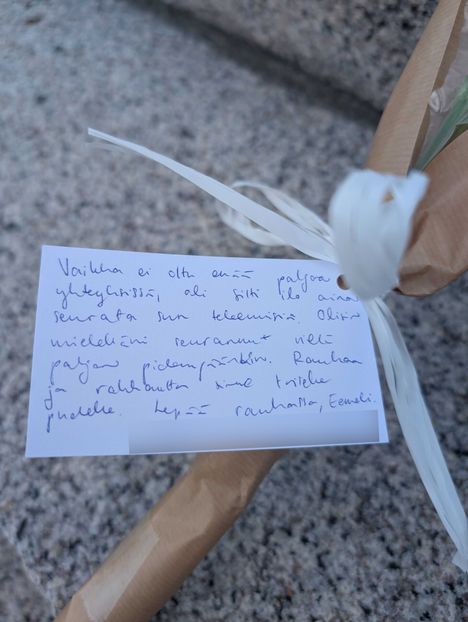 Vaikka ei oltu enää paljoa
yhteyksissä, oli silti ilo aina
seurata sun tekemisiä. Olisin
mielelläni seurannut vielä
paljon pidempäänkin. Rauhaa
ja rakkautta sinne toiselle
puolelle. Lepää rauhassa, Eemeli.